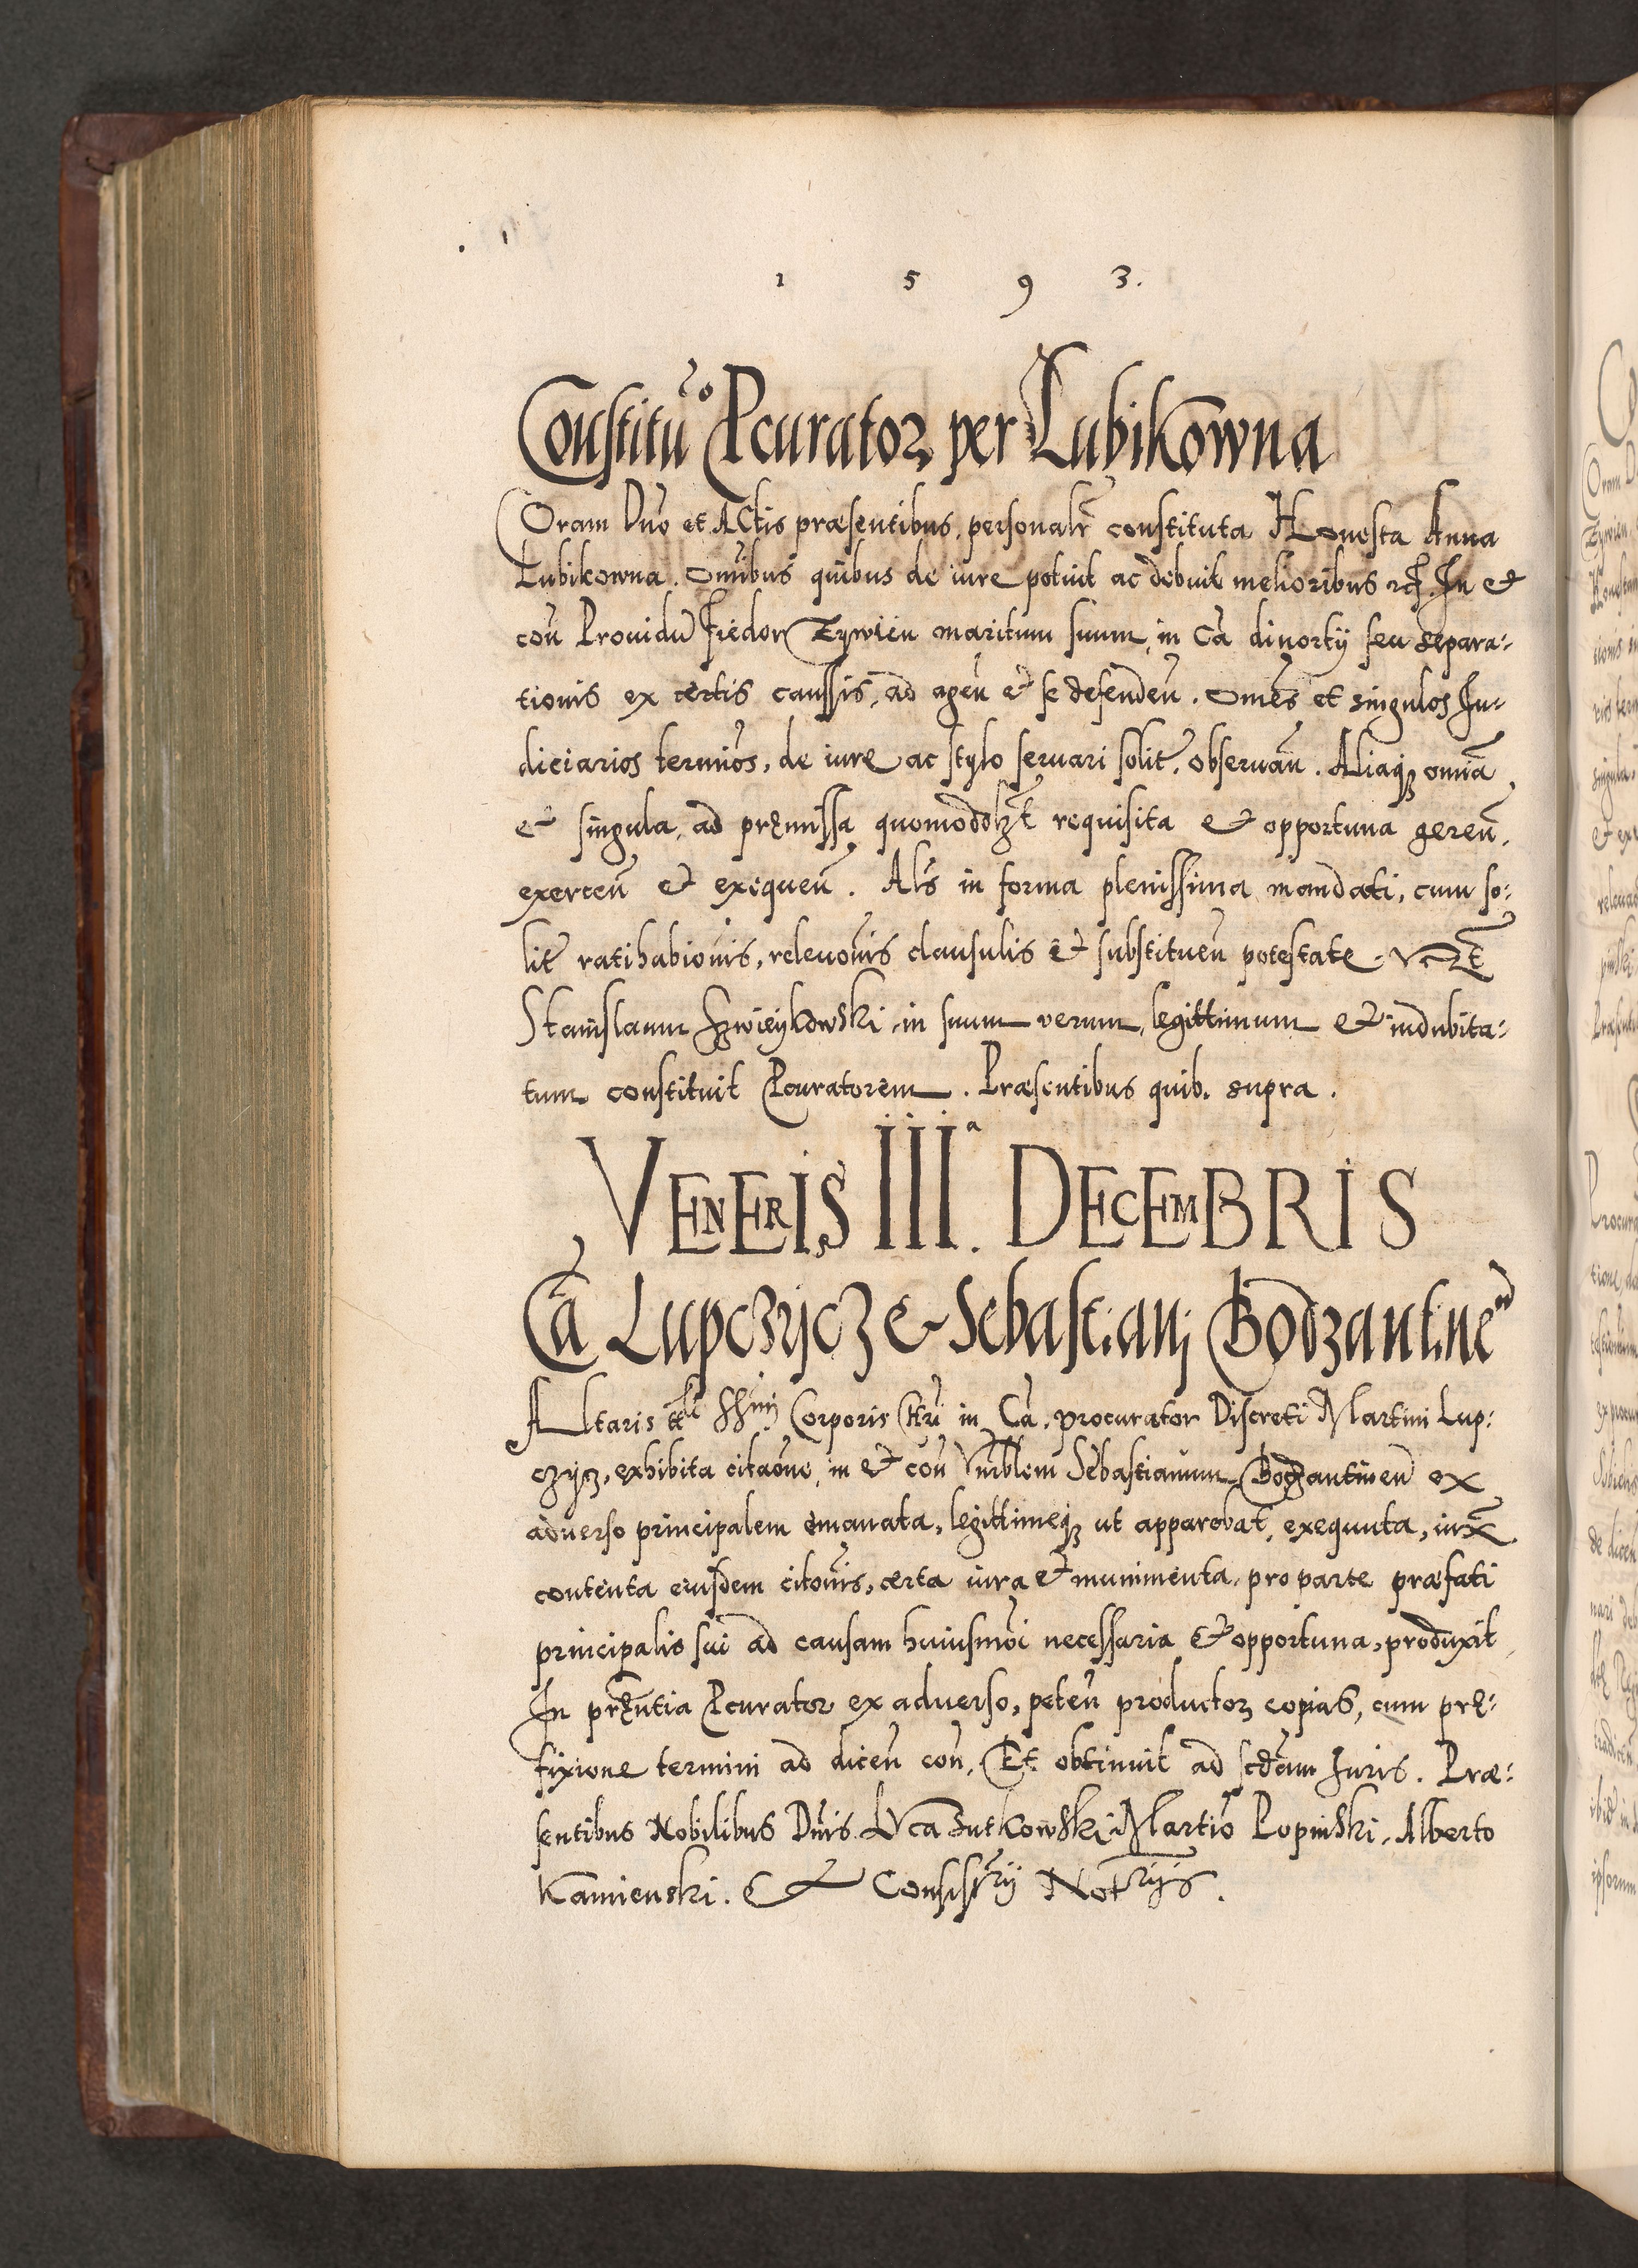 1 5 9 3.
Constitu͠o Pcurator, per Lubikowna
Coram Dn͠o et ACtis præsentibus, personalr͠ constituta Honesta Anna
Lubikowna. Omn͠ibus quibus de iure potuit ac debuit melioribus In et
con͠ Prouidu͠ Fiedor Zywien maritum suum, in Ca͠ diuortij seu separa-
tionis ex certis caussis, ad agen͠ et se defenden͠. Omn͠es et singulos Ju-
diciarios termin͠os, de iure ac stylo seruari solit͠, obseruan͠. Aliaq; omnia͠
et singula, ad pręmissa quomodolzt͠ requisita et opportuna geren͠,
exercen͠ et exequen͠. Als͠ in forma plenissima mandati, cum so-
lit͠ ratihabion͠is, releuon͠is clausulis et substituen͠ potestate.
Stanislaum Zwieykowski in suum verum, legittimum et indubita-
tum constituit Pcuratorem. Præsentibus quib. supra.
VENERIS, IIIa. DECEMBRIS
Ca͠ Lupczycz et Sebastiani Bodzantinen͠
ALtaris ttli͠ SSmi Corporis Chri͠ in Ca͠, procurator Discreti Martini Lup-
czycz, exhibita citaon͠e, in et con͠ Vnr͠blem Sebastianum Bodzantinen͠ ex
aduerso principalem emanata, legittimeq; ut apparebat, exequuta, iuxt͠a
contenta eiusdem citon͠is, certa iura et munimenta, pro parte præfati
principalis sui ad causam huiusmo͠i necessaria et opportuna, produxit
In pręn͠tia Pcurator ex aduerso, peten͠ productor, copias, cum prę-
fixione termini ad dicen͠ con͠, Et obtinuit ad scd͠am Juris. Præ-
sentibus Nobilibus Dn͠is LVca Zutkowski Martin͠o Popinski, Alberto
Kamienski. et Consistr͠ij Notr͠ijs.